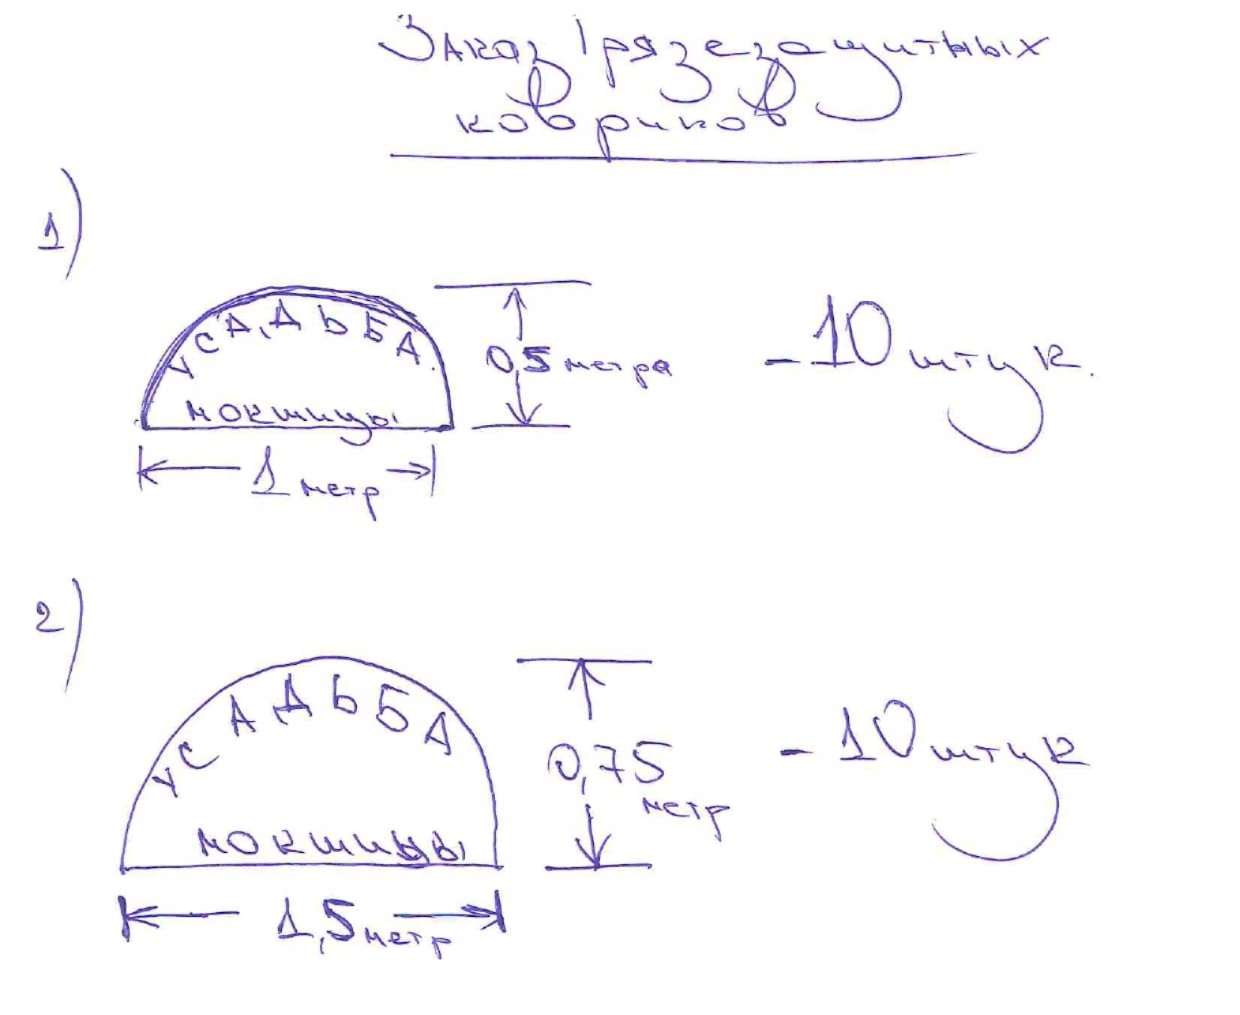 Заказ грязезащитных
ковриков
1)
УСАДЬБА
мокшицы
0,5 метра
- 10 штук.
1 метр
2)
УСАДЬБА
мокшицы
0,75
метр
- 10 штук
1,5 метр